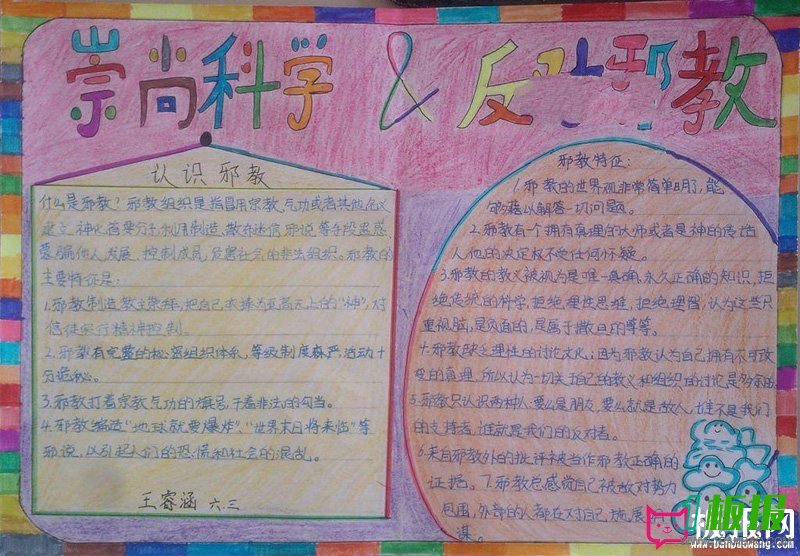 崇尚科学 & 反对邪教
认识邪教
什么是邪教？邪教组织是指冒用宗教、气功或者其他名义
建立，神化首要分子，利用制造、散布迷信邪说等手段蛊惑、
蒙骗他人，发展、控制成员，危害社会的非法组织。邪教的
主要特征是：
1.邪教制造教主崇拜，把自己
为至高无上的“神”，对
信徒实行精神控制。
2.邪教有完整的秘密组织体系，等级制度森严，活动十
分诡秘。
3.邪教打着宗教气功的旗号，干着非法的勾当。
4.邪教编造“地球就要爆炸”、“世界末日将来临”等
邪说，以引起人们的恐慌和社会的混乱。
王睿涵 六.三
邪教特征：
1.邪教的世界观非常简单明了，能
够藉以解答一切问题。
2.邪教有个拥有真理的大师或者是神的传话
人，他的决定权不受任何怀疑。
3.邪教的教义被视为是唯一真确、永久正确的知识，拒
绝传统的科学，拒绝理性思维，拒绝理智，认为这些只
重视脑，是负面的，是属于撒旦的等等。
4.邪教缺乏理性的讨论文化，因为邪教认为自己拥有不可改
变的真理，所以认为一切关于自己的教义和组织的讨论是多余的
5.邪教只认识两种人：要么是朋友，要么就是敌人，谁不是我们
的支持者，谁就是我们的反对者。
6.来自邪教外的批评被当作邪教正确的
证据。7.邪教总感觉自己被敌对势力
包围，外部的人都在对自己施展
谋。
板报
板报网
www.banbaowang.com